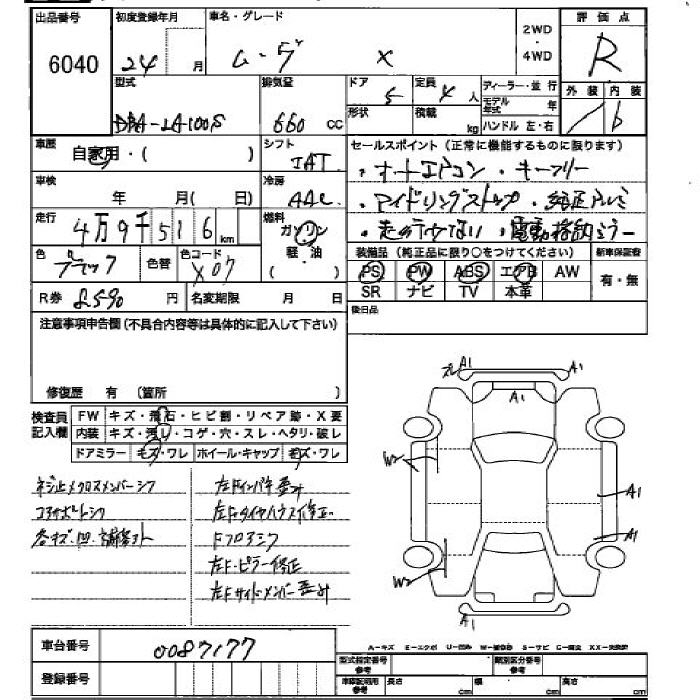 出品番号 初度登録年月 車名・グレード 2WD・4WD 評価点
6040 24 月 ムーヴ X R
型式 排気量 ドア 定員 ディーラー・並行 外装 内装
DBA-LA100S 660 cc 5 4 人 モデル年式 年 / b
形状 積載 kg ハンドル 左・右
車歴 自家用・( ) シフト IAT セールスポイント(正常に機能するものに限ります)
・オートエアコン ・キーフリー
車検 年 月( 日) 冷房 AAC ・アイドリングストップ ・純正アルミ
走行 4万9千516km 燃料 ガソリン 軽・油 ( )
・電動格納ミラー
色 ブラック 色替 色コード X07 装備品(純正品に限り○をつけてください) 新車保証書
PS PW ABS エアB AW 有・無
R券 8590 円 名変期限 月 日 SR ナビ TV 本革
注意事項申告欄(不具合内容等は具体的に記入して下さい) 後日品
修復歴 有 (箇所 )
検査員記入欄 FW キズ・飛石・ヒビ割・リペア跡・X要
内装 キズ・汚レ・コゲ・穴・スレ・ヘタリ・破レ
ドアミラー キズ・ワレ ホイール・キャップ キズ・ワレ
ネジ止メクロスメンバーシフ 左Fインパネ要計
コアサポートシフ 左Fタイヤハウス修正
各キズ・凹・補修アト Fフロアシフ
左F・ピラー修正
左Fサイドメンバー要計
A1 A1 A1
W2 A1
W2 A1
A1
A-キズ E-エクボ U-凹み W-補修跡 S-サビ C-腐食 XX-交換済
車台番号 0087177 型式指定番号参考 類別区分番号参考
登録番号 車庫証明用参考 長さ cm 幅 cm 高さ cm